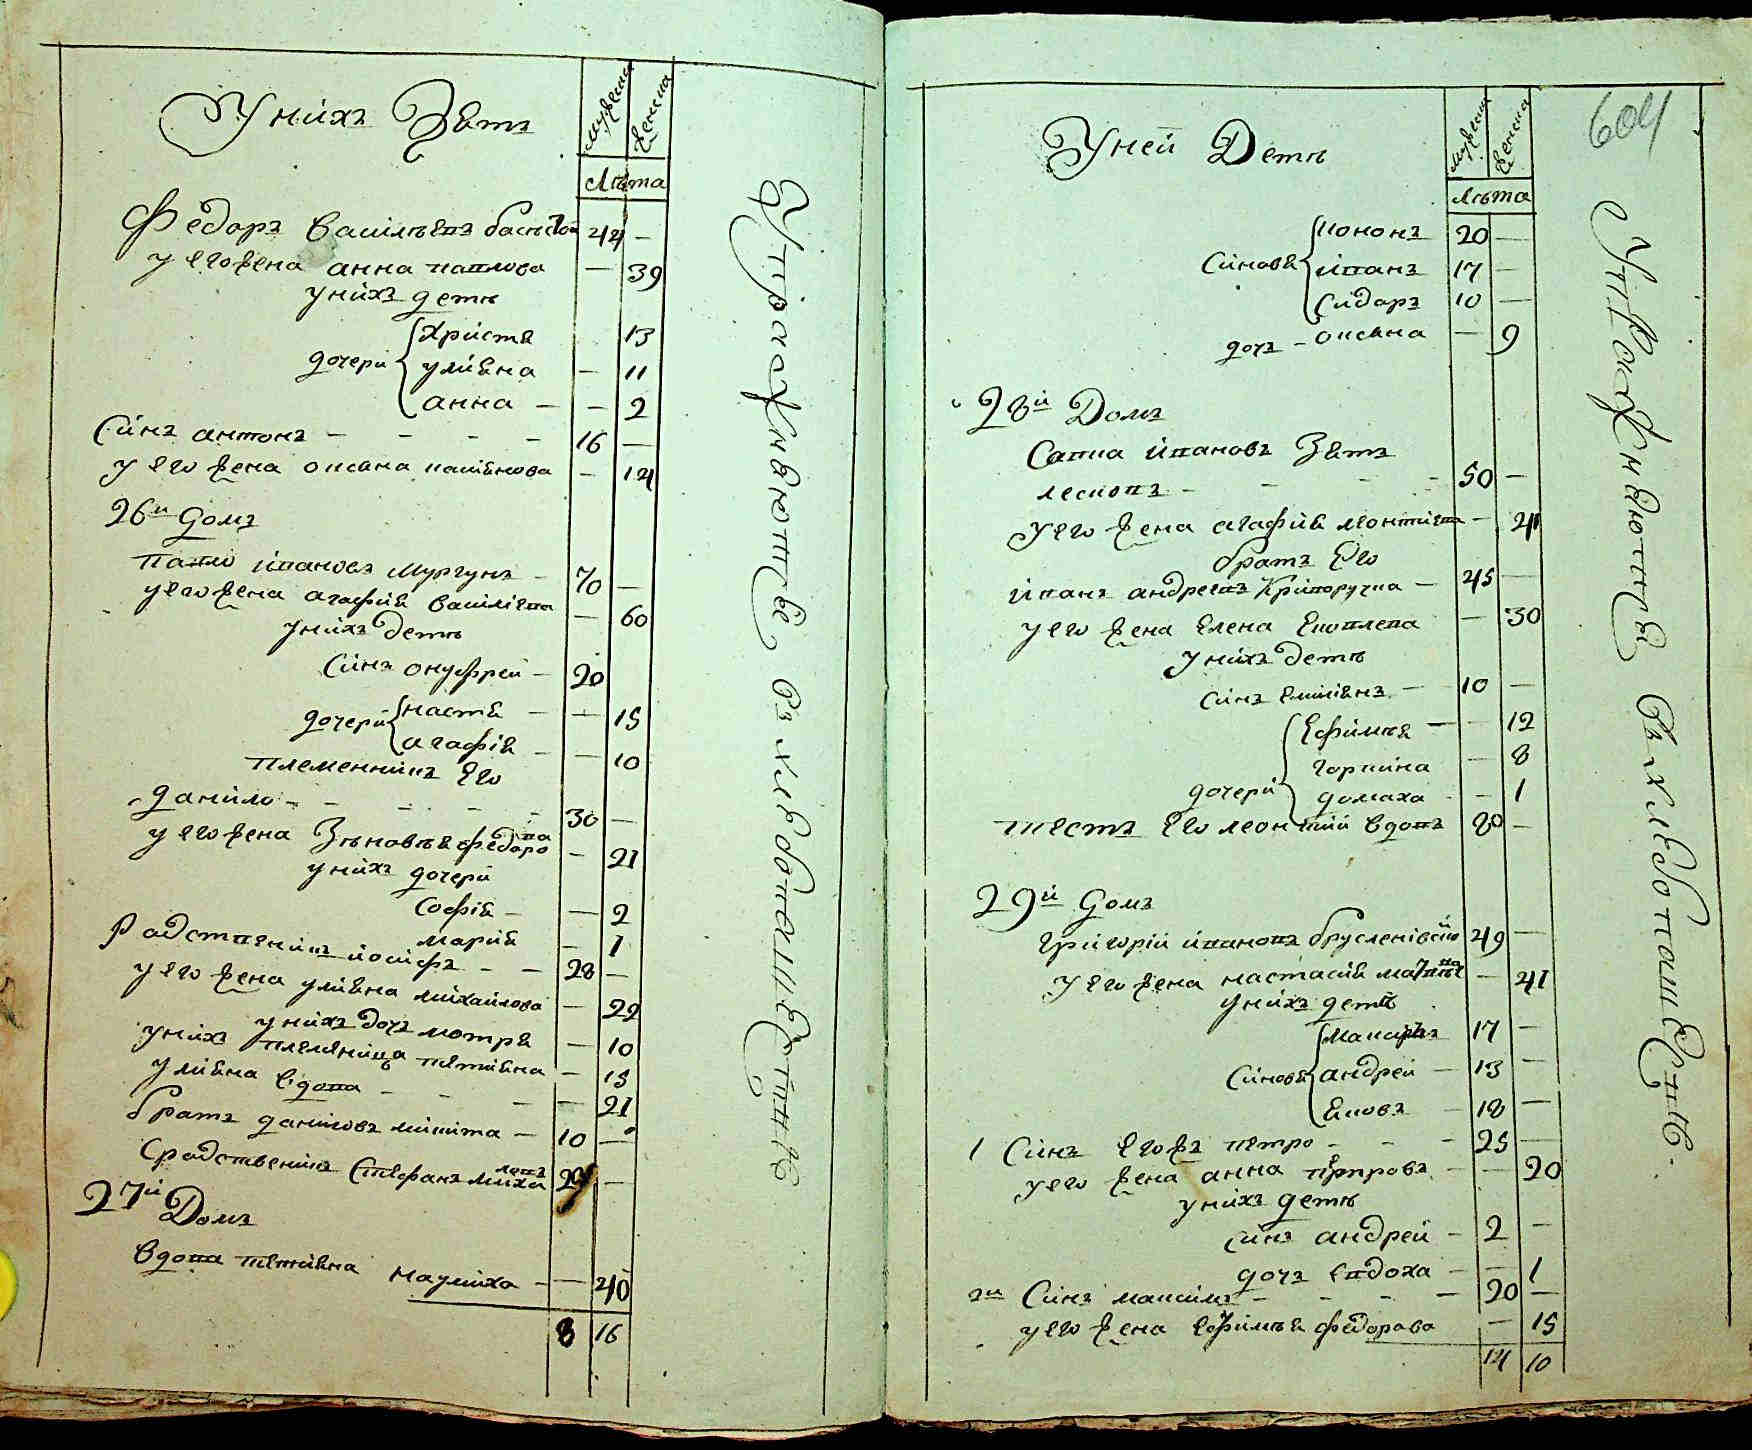 Унихъ Зять
мужеска
женска
лѣта
Федоръ Василѣвъ 44 —
у его жена анна павлова — 39
унихъ детѣ
дочери Христя 13
улияна — 11
анна — — 2
Синъ антонъ — — — — 16 —
у его жена оксана касиянова — 14
26й домъ
павло ивановъ Мургунъ — 70 —
у его жена агафия василиева — 60
унихъ детѣ
Синъ онуфрей — 20
дочери настя — — 15
агафия — — 10
племенникъ его
данило — — — — 30 —
у его жена Зѣновѣя федорова — 21
унихъ дочери
Софія — — 2
Мария — 1
Родственикъ йосифъ — — 28 —
у его жена улияна михайлова — 29
унихъ дочъ мотря — 10
унихъ племяница татияна — 15
улияна вдова — — — — 21
братъ даниловъ микита — 10 —
Сродственикъ Стефанъ —
27й Домъ
вдова татияна наумиха — — 40
8 16
Упражняются въ хлебопашестве
604
Уней Детѣ
мужеска
женска
лѣта
Синовя кононъ 20 —
иванъ 17 —
Сидоръ 10 —
дочъ — оксана — 9
28й Домъ
Савка ивановъ Зять
лесковъ — — — — 50 —
у его жена агафия леонтиева — 41
братъ его
иванъ андреевъ Криворучка — 45 —
у его жена елена яковлева — 30
унихъ детѣ
синъ емилиянъ — 10 —
дочери Ефимѣя — — 12
горпина — 8
домаха — — 1
тестъ его леонтий вдовъ 80 —
29й домъ
григорій ивановъ 49 —
у его жена настасия — 41
унихъ детѣ
Синовя макаръ 17 —
андрей — 13 —
яковъ — 18 —
1 Синъ егожъ петро — — — 25 —
у его жена анна — — 20
унихъ детѣ
синъ андрей — 2 —
дочъ евдоха — — 1
2й Синъ максимъ — — — — 20 —
у его жена ефимѣя федорова — 15
14 10
Упражняются въ хлебопашестве